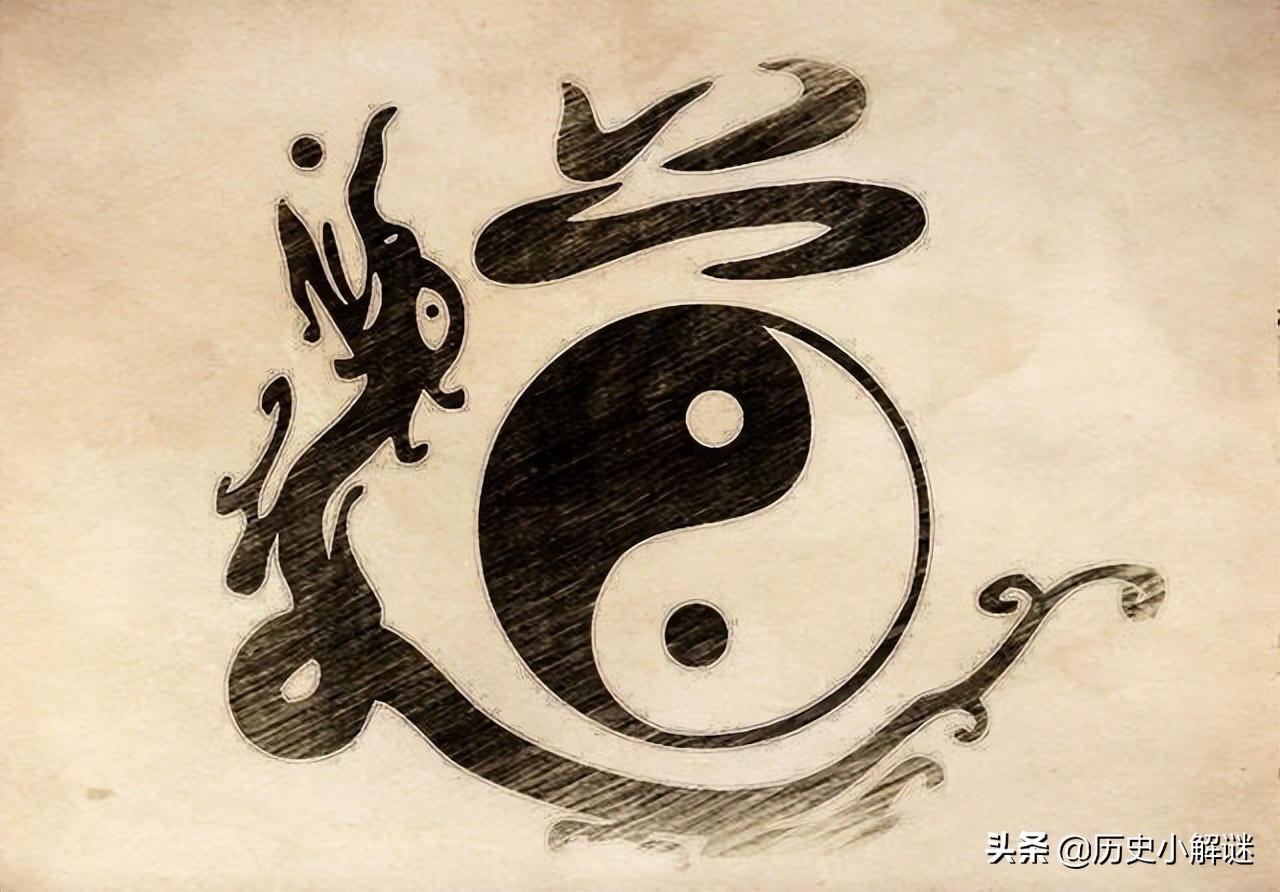 道
头条 @历史小解谜